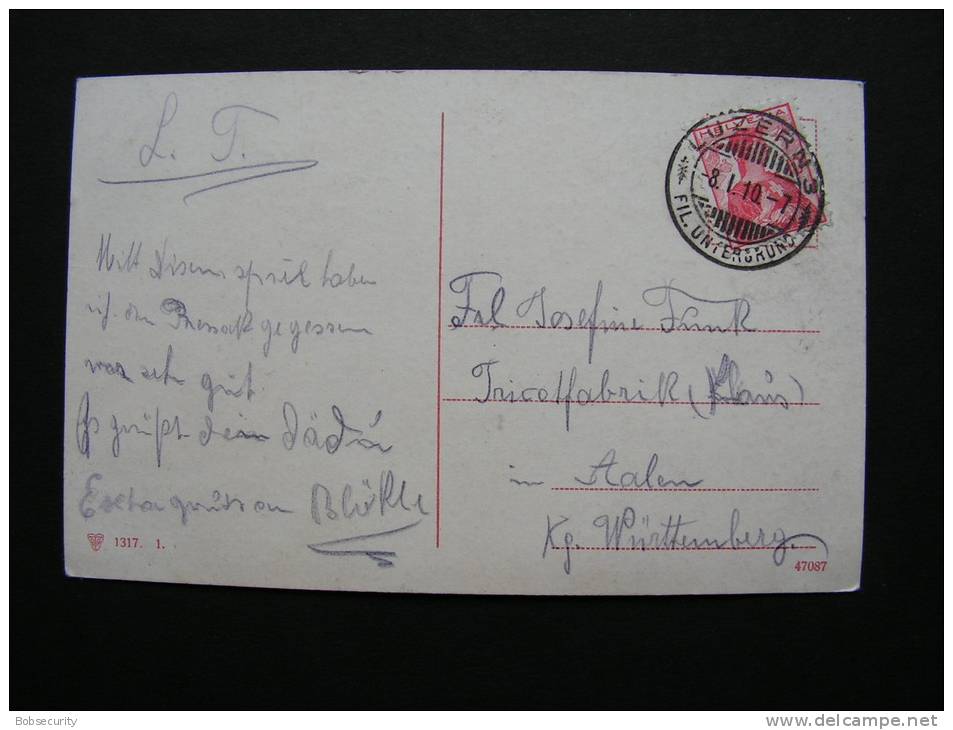 L. T.
Mitt disem haben
ich den gegessen
war sehr gut.
Es grüßt dein
Extra
1317. 1.
HELVETIA
LUZERN 3
-8. I. 10.-7
FIL. UNTERGRUND
Frl Josefine Funk
Tricotfabrik (Klaus)
in Aalen
Kg. Württemberg.
47087
Bobsecurity
www.delcampe.net